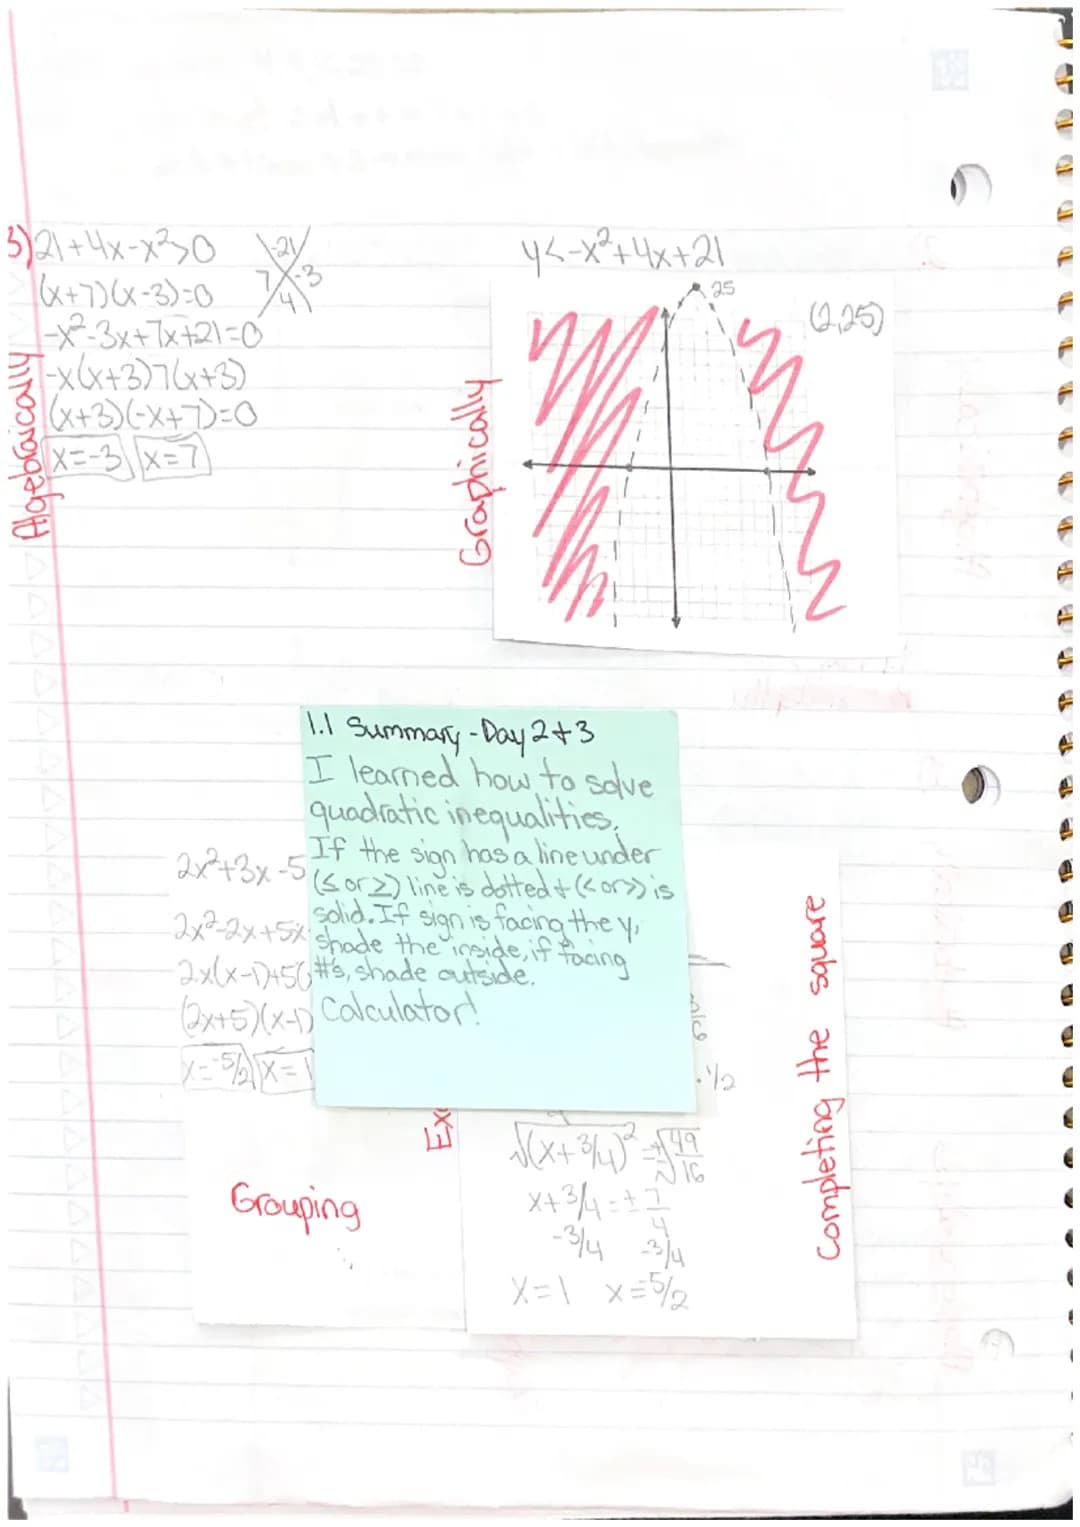 3) 21+4x-x²>0
(x+7)(x-3)=0
-21
7 -3
4
-x²-3x+7x+21=0
-x(x+3)7(x+3)
(x+3)(-x+7)=0
x=-3 x=7
Algebraically
y<-x²+4x+21
25
(2,25)
Graphically
1.1 Summary - Day 2+3
I learned how to solve
quadratic inequalities.
If the sign has a line under
(≤ or ≥) line is dotted + (< or >) is
solid. If sign is facing the y,
shade the inside, if facing
#'s, shade outside.
Calculator!
2x²+3x-5
2x²-2x+5x
2x(x-1)+5(
(2x+5)(x-1)
x=-5/2 x=1
Grouping
Ex
3
6
·1/2
√(x+3/4)²=±√49/16
x+3/4=±7/4
-3/4 -3/4
x=1 x=-5/2
Completing the square